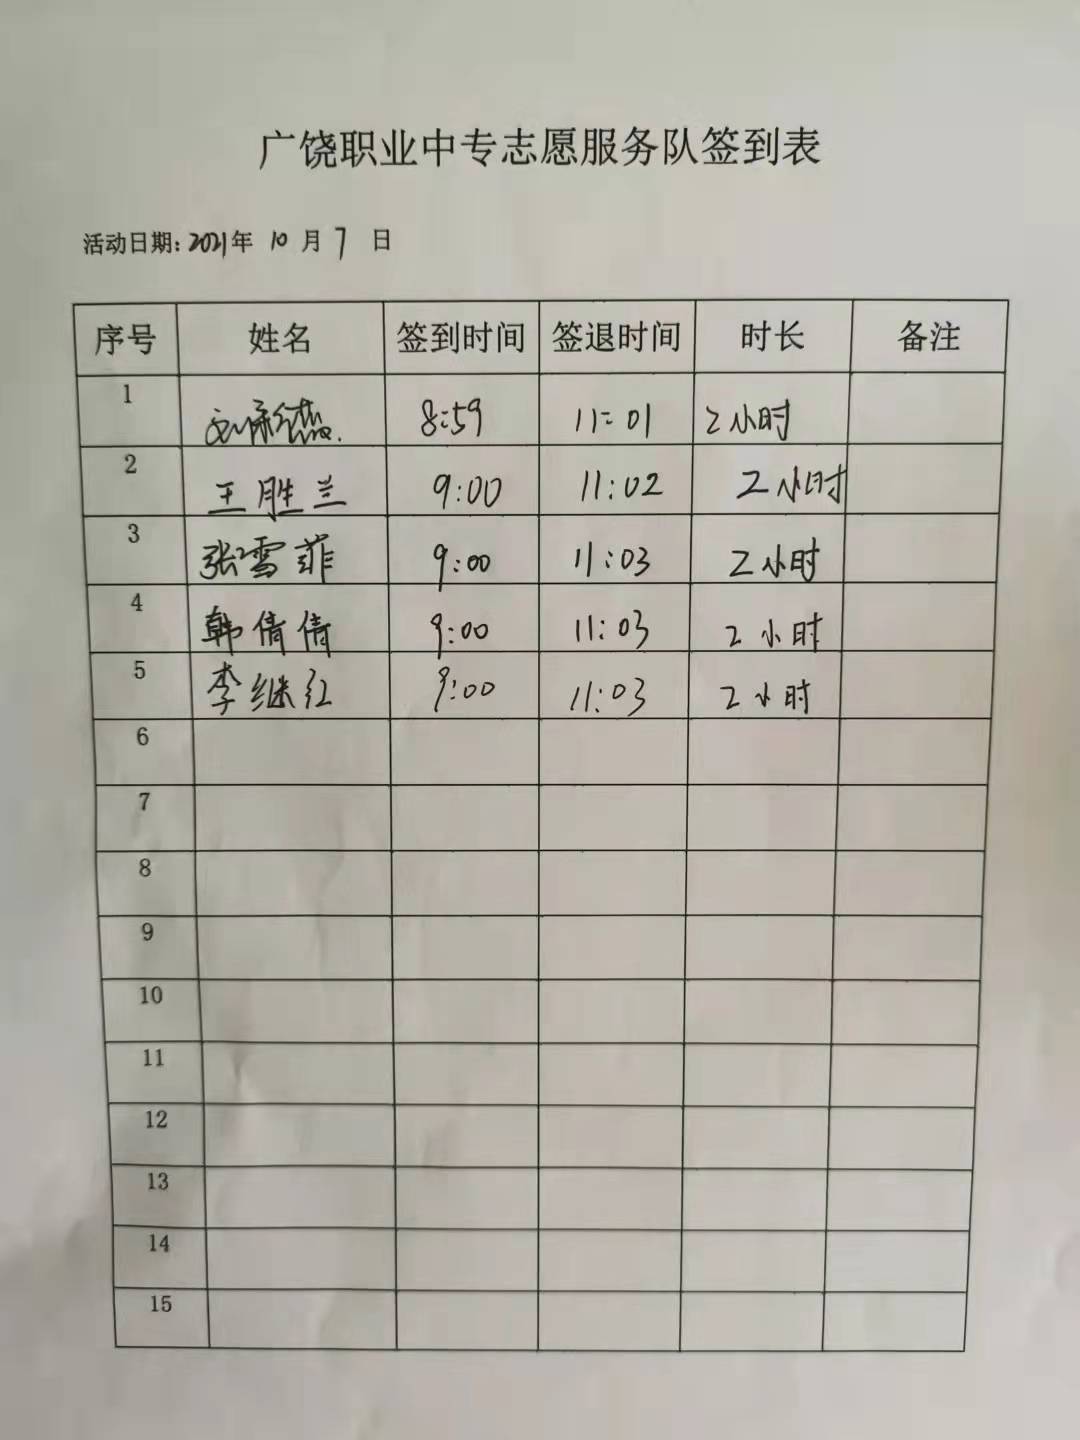 广饶职业中专志愿服务队签到表
活动日期：2021年 10 月 7 日
序号 姓名 签到时间 签退时间 时长 备注
1 8:59 11:01 2小时
2 王胜兰 9:00 11:02 2小时
3 张雪菲 9:00 11:03 2小时
4 韩倩倩 9:00 11:03 2小时
5 李继红 9:00 11:03 2小时
6
7
8
9
10
11
12
13
14
15